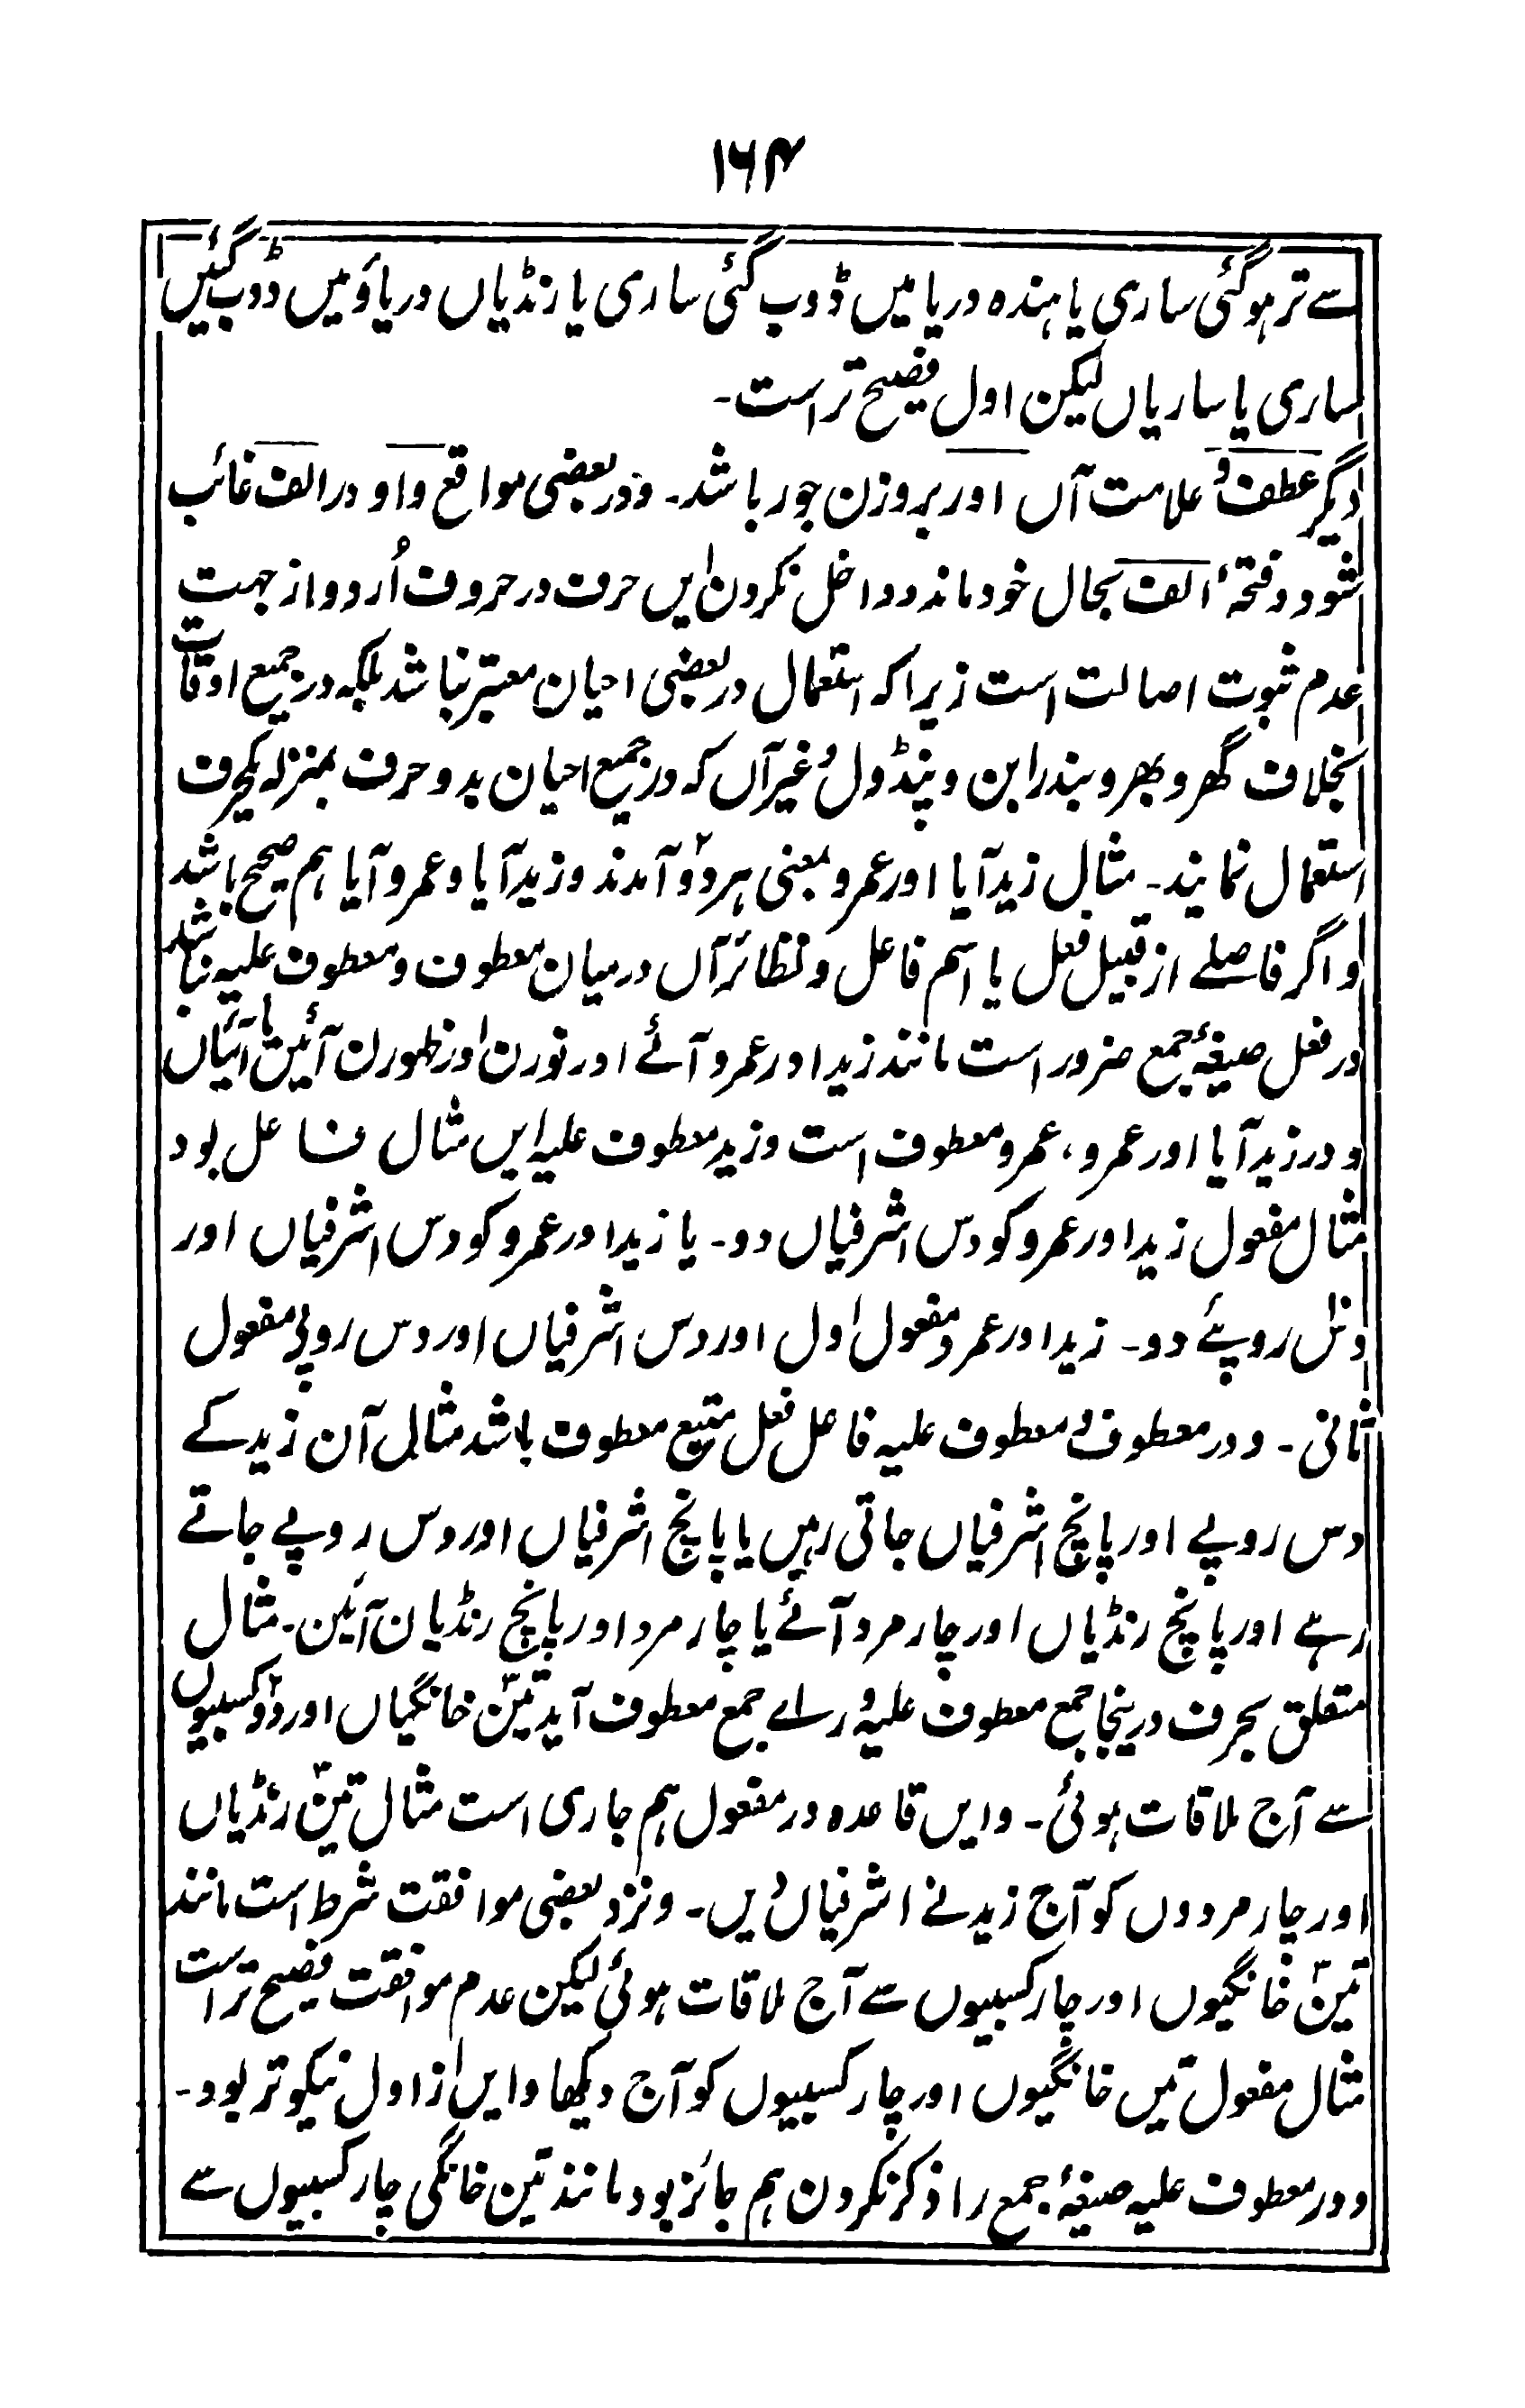 ۱۶۴
سے تر ہوگئی ساری یا ہندہ دریا میں ڈوب گئی ساری یا رنڈیاں دریاؤ میں ڈوب گئیں
ساری یا ساریاں لیکن اول فصیح تر است۔
دیگر عطف و علامت آں اور بروزن جور باشد۔ و در بعضی مواقع واو در الف غائب
شود و فتحۂ الف بحال خود ماند و داخل نکردن ایں حرف در حروف اُردو از جہت
عدم ثبوت اصالت است زیرا کہ استعمال در بعضی احیان معتبر نباشد بلکہ در جمیع اوقات
بخلاف گھر و بھر و بندرابن و پنڈول و غیر آں کہ در جمیع احیان بدو حرف بمنزلہ یکحرف
استعمال نمایند۔ مثال زید آیا اور عمرو بمعنی ہر دو آمدند و زید آیا و عمرو آیا ہم صحیح باشد
و اگر فاصلے از قبیل فعل یا اسم فاعل و نظائر آں درمیان معطوف و معطوف علیہ نباشد
در فعل صیغۂ جمع ضرور است مانند زید اور عمرو آئے اور نورن اور ظہورن آئیں یا آئیاں
و در زید آیا اور عمرو، عمرو معطوف است و زید معطوف علیہ ایں مثال فاعل بود
مثال مفعول زید اور عمرو کو دس اشرفیاں دو۔ یا زید اور عمرو کو دس اشرفیاں اور
دس روپئے دو۔ زید اور عمرو مفعول اول اور دس اشرفیاں اور دس روپے مفعول
ثانی۔ و در معطوف و معطوف علیہ فاعل فعل متبع معطوف باشد مثال آن زید کے
دس روپے اور پانچ اشرفیاں جاتی رہیں یا پانچ اشرفیاں اور دس روپے جاتے
رہے اور پانچ رنڈیاں اور چار مرد آئے یا چار مرد اور پانچ رنڈیان آئین۔ مثال
متعلق بحرف درینجا جمع معطوف علیہ و راے جمع معطوف آید تین خانگیاں اور دو کسبیوں
سے آج ملاقات ہوئی۔ و ایں قاعدہ در مفعول ہم جاری است مثال تین رنڈیاں
اور چار مردوں کو آج زید نے اشرفیاں دیں۔ و نزد بعضی موافقت شرط است مانند
تین خانگیوں اور چار کسبیوں سے آج ملاقات ہوئی لیکن عدم موافقت فصیح تر است
مثال مفعول تین خانگیوں اور چار کسبیوں کو آج دیکھا و ایں از اول نیکو تر بود۔
و در معطوف علیہ صیغۂ جمع را ذکر نکردن ہم جائز بود مانند تین خانگی چار کسبیوں سے